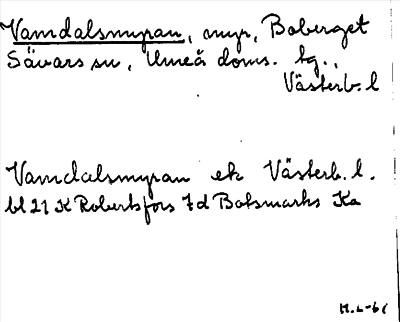 Vamdalsmyran, myr, Boberget
Sävars sn, Umeå doms. tg.,
Västerb. l
Vamdalsmyran ek Västerb. l.
bl 21 K Robertsfors 7d Botsmarks Ka